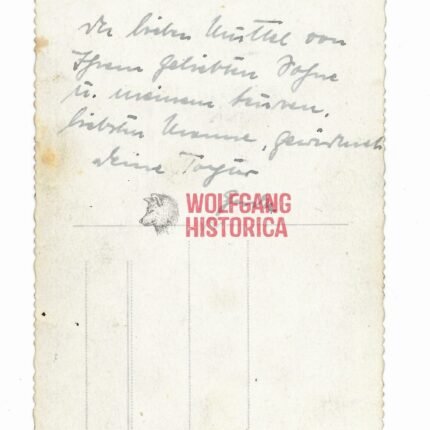 der lieben Muttel von
Ihrem geliebten Sohne
u. meinem teuren,
liebsten Manne, gewidmet
Deine
WOLFGANG
HISTORICA